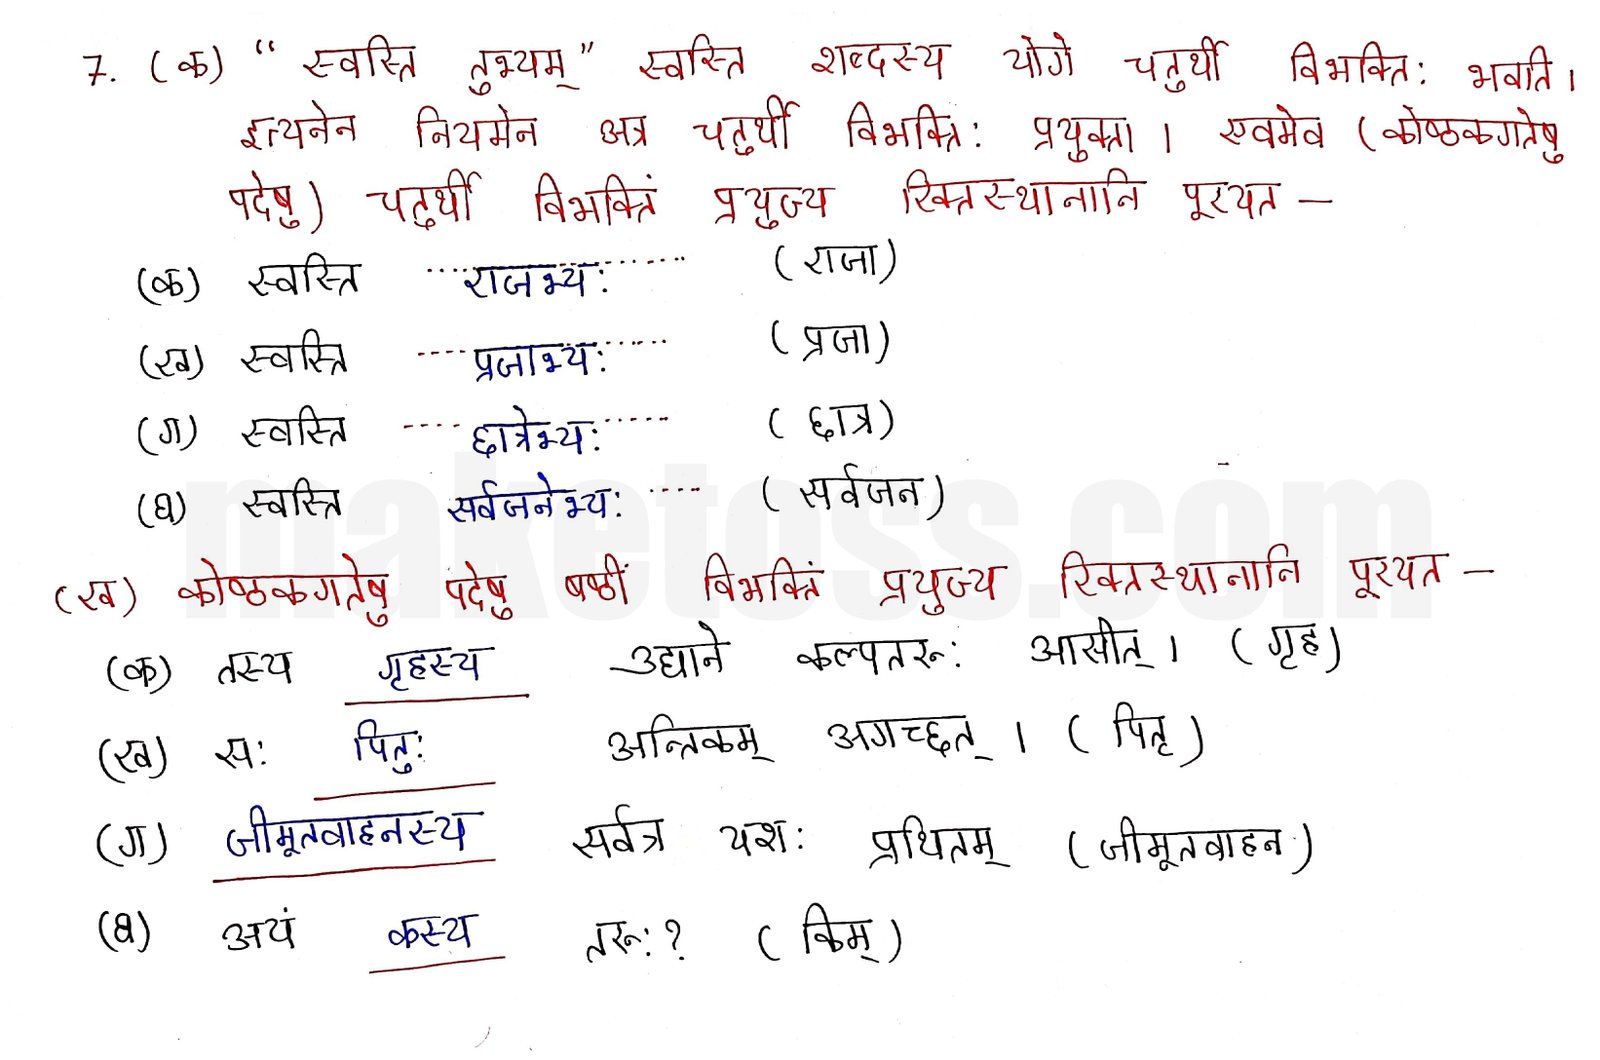 7. (क) “स्वस्ति तुभ्यम्” स्वस्ति शब्दस्य योगे चतुर्थी विभक्तिः भवति।
इत्यनेन नियमेन अत्र चतुर्थी विभक्तिः प्रयुक्ता। एवमेव (कोष्ठकगतेषु
पदेषु) चतुर्थी विभक्तिं प्रयुज्य रिक्तस्थानानि पूरयत –
(क) स्वस्ति ....राजभ्यः........ (राजा)
(ख) स्वस्ति ....प्रजाभ्यः...... (प्रजा)
(ग) स्वस्ति ....छात्रेभ्यः...... (छात्र)
(घ) स्वस्ति सर्वजनेभ्यः .... (सर्वजन)
(ख) कोष्ठकगतेषु पदेषु षष्ठीं विभक्तिं प्रयुज्य रिक्तस्थानानि पूरयत –
(क) तस्य गृहस्य उद्याने कल्पतरूः आसीत्। (गृह)
(ख) सः पितुः अन्तिकम् अगच्छत्। (पितृ)
(ग) जीमूतवाहनस्य सर्वत्र यशः प्रथितम् (जीमूतवाहन)
(घ) अयं कस्य तरूः? (किम्)
maketoss.com